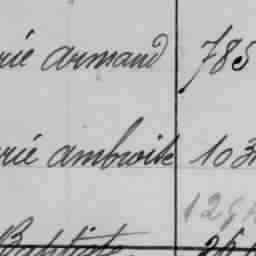 rié armand 785
rié ambroise 103
Baptiste